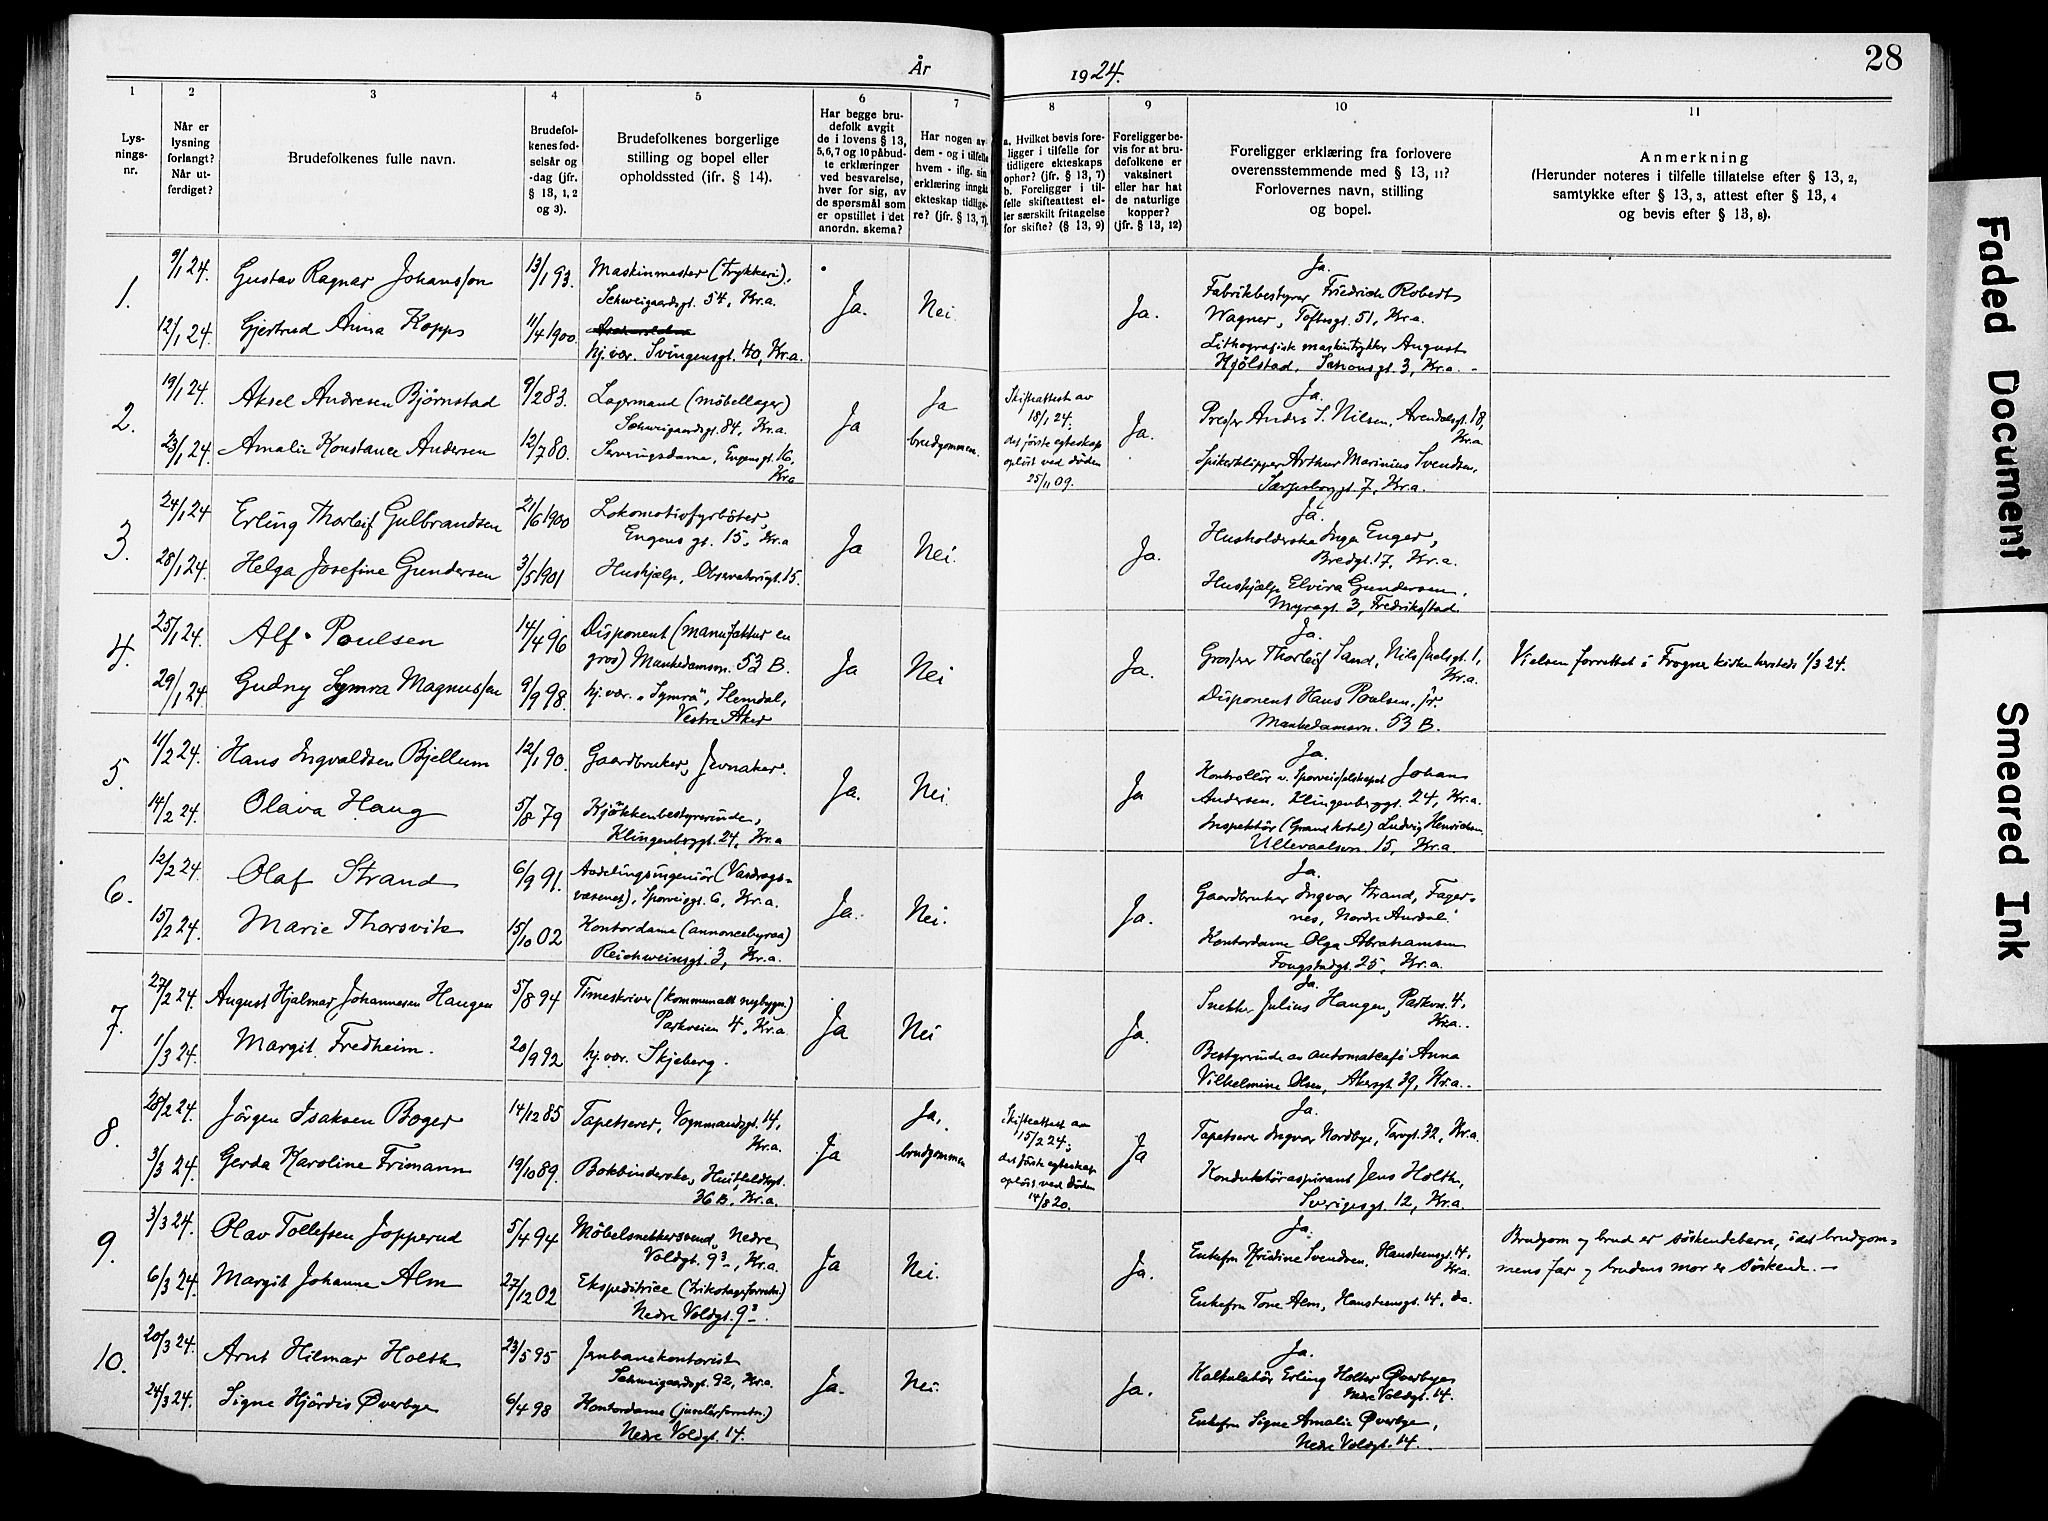 År
1924.
28
1
2
3
4
5
6
7
8
9
10
11
Lys-
nings-
nr.
Når er
lysning
forlangt?
Når ut-
ferdiget?
Brudefolkenes fulle navn.
Brudefol-
kenes fød-
selsår og
-dag (jfr.
§ 13, 1, 2
og 3).
Brudefolkenes borgerlige
stilling og bopel eller
opholdssted (ifr. § 14).
Har begge bru-
defolk avgit
de i lovens § 13,
5,6,7 og 10 påbud-
te erklæringer
ved besvarelse,
hver for sig, av
de spørsmål som
er opstillet i det
anordn. skema?
Har nogen av
dem - og i tilfelle
hvem - iflg. sin
erklæring inngåt
ekteskap tidlige-
re? (jfr. § 13, 7).
a. Hvilket bevis fore-
ligger i tilfelle for
tidligere ekteskaps
ophør? (jfr. § 13, 7)
b. Foreligger i til-
felle skifteattest el-
ler særskilt fritagelse
for skifte? (§ 13, 9)
Foreligger be-
vis for at bru-
defolkene er
vaksinert
eller har hat
de naturlige
kopper?
(jfr. § 13, 12)
Foreligger erklæring fra forlovere
overensstemmende med § 13, 11?
Forlovernes navn, stilling
og bopel.
Anmerkning
(Herunder noteres i tilfelle tillatelse efter § 13, 2,
samtykke efter § 13, 3, attest efter § 13, 4
og bevis efter § 13, 8).
1.
9/1 24.
Gustav Ragnar Johansson
13/1 93.
Maskinmester (trykkeri),
Schweigaardsgt. 54, Kr.a.
12/1 24.
Gjertrud Anna Kopps
11/4 1900
hj.vær. Svingensgt. 40, Kr.a.
Ja.
Nei.
Ja.
Ja.
Fabrikbestyrer Friedrich Robert
Wagner, Toftesgt. 51, Kr.a.
Lithografisk maskintrykker August
Kjølstad, 3, Kr.a. -
2.
19/1 24.
Aksel Andresen Bjørnstad
9/2 83.
Lagermand (møbellager)
Schweigaardsgt. 84, Kr.a.
23/1 24.
Amalie Konstance Andersen
12/7 80.
Serveringsdame, Engensgt. 16,
Kr.a
Ja
Ja
brudgommen.
Skifteattest av
18/1 24.
det første egteskap
opløst ved døden
25/11 09.
Ja.
Ja.
Presser Anders S. Nilsen, Arendalsgt. 18,
Kr.a
Spikerklipper Arthur Marinius Svendsen,
Sarpsborggt. 7, Kr.a.
3.
24/1 24
Erling Thorleif Gulbrandsen
21/6 1900
Lokomotivfyrbøter,
Engens gt. 15, Kr.a
28/1 24.
Helga Josefine Gundersen
3/5 1901
Hushjælp, Observatoriegt. 15.
Ja
Nei.
Ja.
Ja.
Husholderske Inga Enger,
Bredgt. 17, Kr.a.
Hushjælp Elvira Gundersen,
Myragt. 3, Fredrikstad
4.
25/1 24.
Alf Poulsen
14/4 96
Disponent (manufaktur en
gros) Munkedamsvn. 53 B.
29/1 24.
Gudny Symra Magnussen
9/9 98.
hj.vær. "Symra", Slemdal,
Vestre Aker
Ja
Nei
Ja.
Ja.
Grosser Thorleif Sand, Nils Juelsgt. 1,
Kr.a.
Disponent Hans Poulsen jr.
Munkedamsvn. 53 B.
Vielsen forrettet i Frogner kirke hersteds 1/3 24.
5.
11/2 24.
Hans Ingvaldsen Bjellum
12/1 90.
Gaardbruker, Jevnaker.
14/2 24.
Olava Haug
5/8 79
Kjøkkenbestyrerinde,
Klingenberggt. 24, Kr.a
Ja.
Nei.
Ja
Ja.
Kontrollør v. Sporveisselskapet Johan
Andersen, Klingenberggt. 24, Kr.a.
Inspektør (Grand hotel) Ludvig Henriksen,
Ullevaalsvn. 15, Kr.a.
6.
12/2 24.
Olaf Strand
6/9 91.
Avdelingsingeniør (Vasdrags-
væsenet), Sporveisgt. 6, Kr.a.
15/2 24.
Marie Thorsvik
15/10 02
Kontordame (annoncebyraa)
Reichweinsgt. 3, Kr.a.
Ja.
Nei.
Ja.
Ja.
Gaardbruker Ingvar Strand, Fager-
nes, Nordre Aurdal.
Kontordame Olga Abrahamsen
Fougstadgt. 25, Kr.a.
7.
27/2 24.
August Hjalmar Johannesen Haugen
5/8 94
Timeskriver (kommunalt nybygn.)
Parkveien 4, Kr.a
1/3 24.
Margit Fredheim.
20/9 92
hj.vær. Skjeberg.
Ja
Nei
Ja.
Ja.
Snekker Julius Haugen, Parkvn. 4,
Kr.a.
Bestyrerinde av automatcafé Anna
Vilhelmine Olsen, Akersgt. 39, Kr.a.
8.
28/2 24.
Jørgen Isaksen Boger
14/12 85
Tapetserer, Vognmandsgt. 14,
Kr.a.
3/3 24.
Gerda Karoline Frimann
19/10 89.
Bokbinderske, Huitfeldtsgt.
36 B, Kr.a.
Ja
Ja.
brudgommen
Skifteattest av
15/2 24;
det første egteskap
opløst ved døden
14/8 20.
Ja
Ja.
Tapetserer Ingvar Nordbye, Torvgt. 32, Kr.a.
Konduktøraspirant Jens Holth,
Sverigesgt. 12, Kr.a.
9.
3/3 24.
Olav Tollefsen Jopperud
5/4 94
Møbelsnekkersvend, Nedre
Voldgt. 9³, Kr.a.
6/3 24.
Margit Johanne Alm
27/12 02
Ekspeditrice (trikotageforretn.)
Nedre Voldgt. 9³.
Ja
Nei.
Ja.
Ja.
Enkefru Kristine Svendsen, Hansteensgt. 14,
Kr.a.
Enkefru Tone Alm, Hansteensgt. 14, do.
Brudgom og brud er søskendebarn, idet brudgom-
mens far og brudens mor er søskende. —
10.
20/3 24.
Arnt Hilmar Holth
23/5 95
Jernbanekontorist
Schweigaardsgt. 92, Kr.a.
24/3 24.
Signe Hjørdis Øverbye
6/4 98
Kontordame (juvelerforretn.)
Nedre Voldgt. 14.
Ja.
Nei.
Ja.
Ja.
Kalkulatør Erling Holter Øverbye
Nedre Voldgt. 14.
Enkefru Signe Amalie Øverbye,
Nedre Voldgt. 14.
Faded Document
Smeared Ink